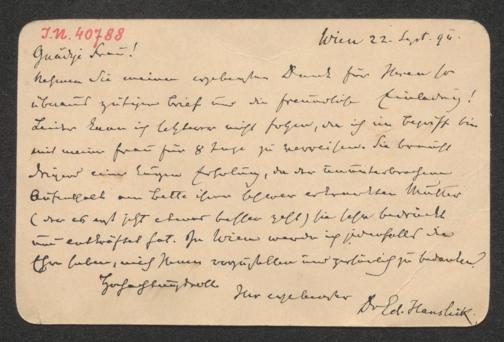 I.N. 40788
Wien 22. Sept. 94.
Gnädige Frau!
Nehmen Sie meinen ergebensten Dank für Ihren so
überaus gütigen Brief und die freundliche Einladung!
Leider kann ich letzterer nicht folgen, da ich im Begriff bin
mit meiner Frau für 8 Tage zu verreisen. Sie braucht
dringend eine kurze Erholung, da der ununterbrochene
Aufenthalt am Bette ihrer schwer erkrankten Mutter
(der es erst jetzt etwas besser geht) sie sehr bedrückt
und entkräftet hat. In Wien werde ich jedenfalls die
Ehre haben, mich Ihnen vorzustellen und persönlich zu bedanken.
Hochachtungsvoll
Ihr ergebenster
Dr Ed. Hanslick.